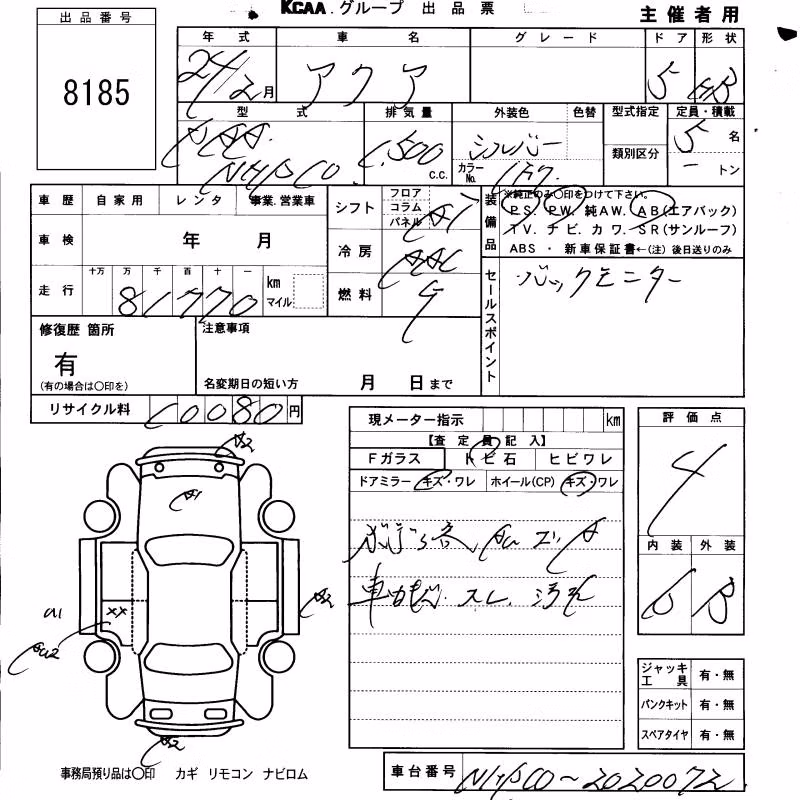 KCAA.グループ 出品票
主催者用
出品番号
8185
年式 車名 グレード ドア 形状
24/2月 アクア 5 HB
型式 排気量 外装色 色替 型式指定 定員・積載
DAA 1,500 c.c. シルバー 5名
NHP10 カラーNo. 1F7 類別区分 トン
車歴 自家用 レンタ 事業.営業車
車検 年 月
走行 十万 万 千 百 十 一 km マイル
81770
シフト フロア コラム パネル AT
冷房 AAC
燃料 G
装備品
※純正のみ〇印をつけて下さい。
PS. PW. 純AW. AB(エアバック)
TV. ナビ. カワ. SR(サンルーフ)
ABS ・ 新車保証書←(注) 後日送りのみ
セールスポイント
バックモニター
修復歴 箇所
有
(有の場合は〇印を)
注意事項
名変期日の短い方 月 日まで
リサイクル料 10080円
現メーター指示 km
【査定員記入】
Fガラス トビ石 ヒビワレ
ドアミラー キズ・ワレ ホイール(CP) キズ・ワレ
スレ、汚れ
評価点
4
内装 外装
B B
ジャッキ工具 有・無
パンクキット 有・無
スペアタイヤ 有・無
A2
A1
XX
A2
A2
事務局預り品は〇印 カギ リモコン ナビロム
車台番号 NHP10〜2020072